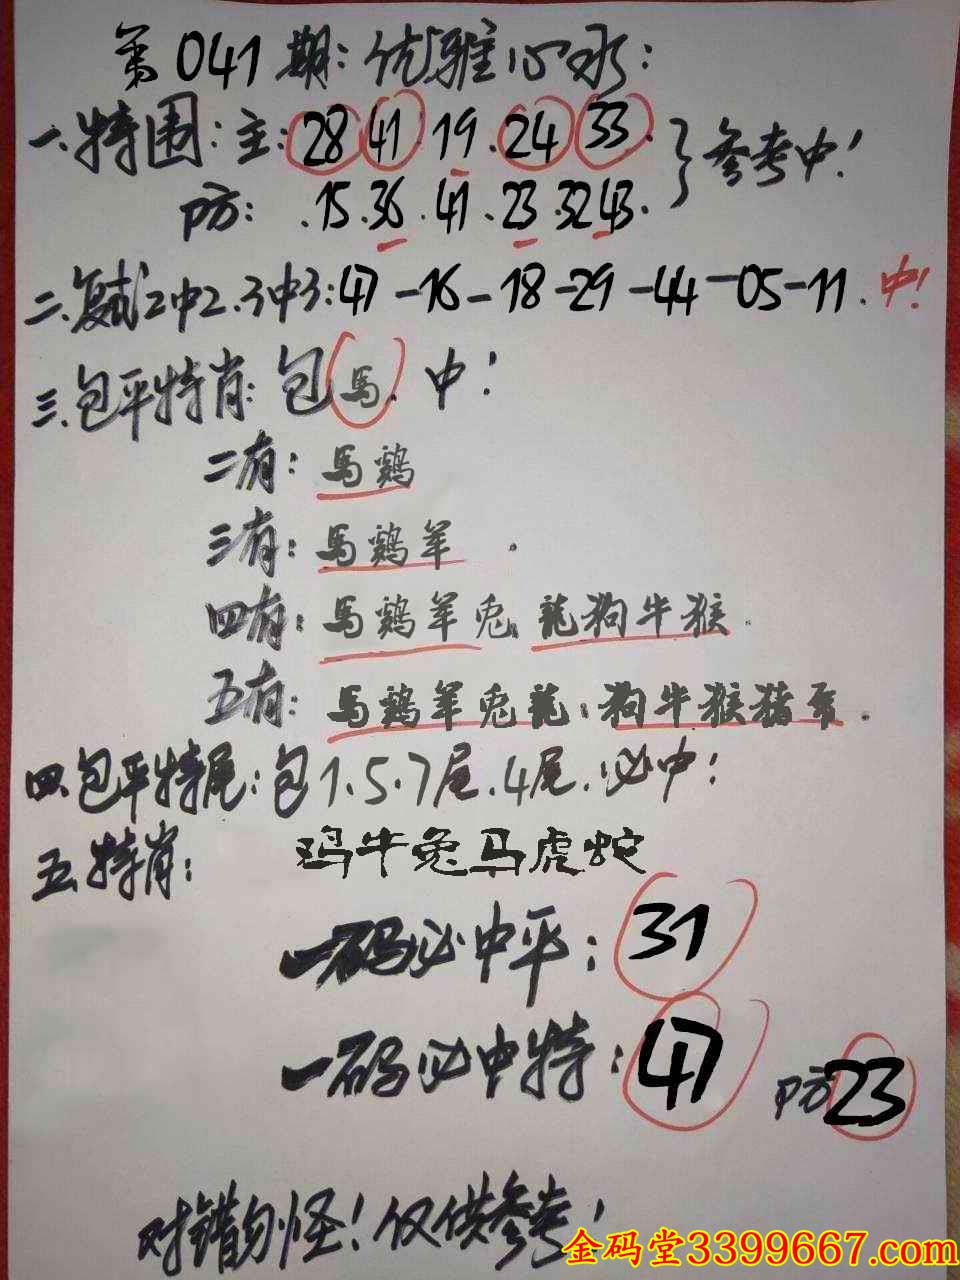 第041期:优雅心水:
一.特围:主:28 41.19.24 33.
防:.15.36.41.23.32 43.
}参考中!
二.复式2中2.3中3:47-16-18-29-44-05-11.中!
三.包平特肖:包馬.中!
二有:馬鷄
三有:馬鷄羊.
四有:馬鷄羊兎.龍狗牛猴.
五有:馬鷄羊兎龍:狗牛猴猪.
四.包平特尾:包1.5.7尾.4尾.必中!
五.特肖:鸡牛兔马虎蛇
一码必中平:31
一码必中特:47
防23
对错勿怪!仅供参考!
金码堂3399667.com